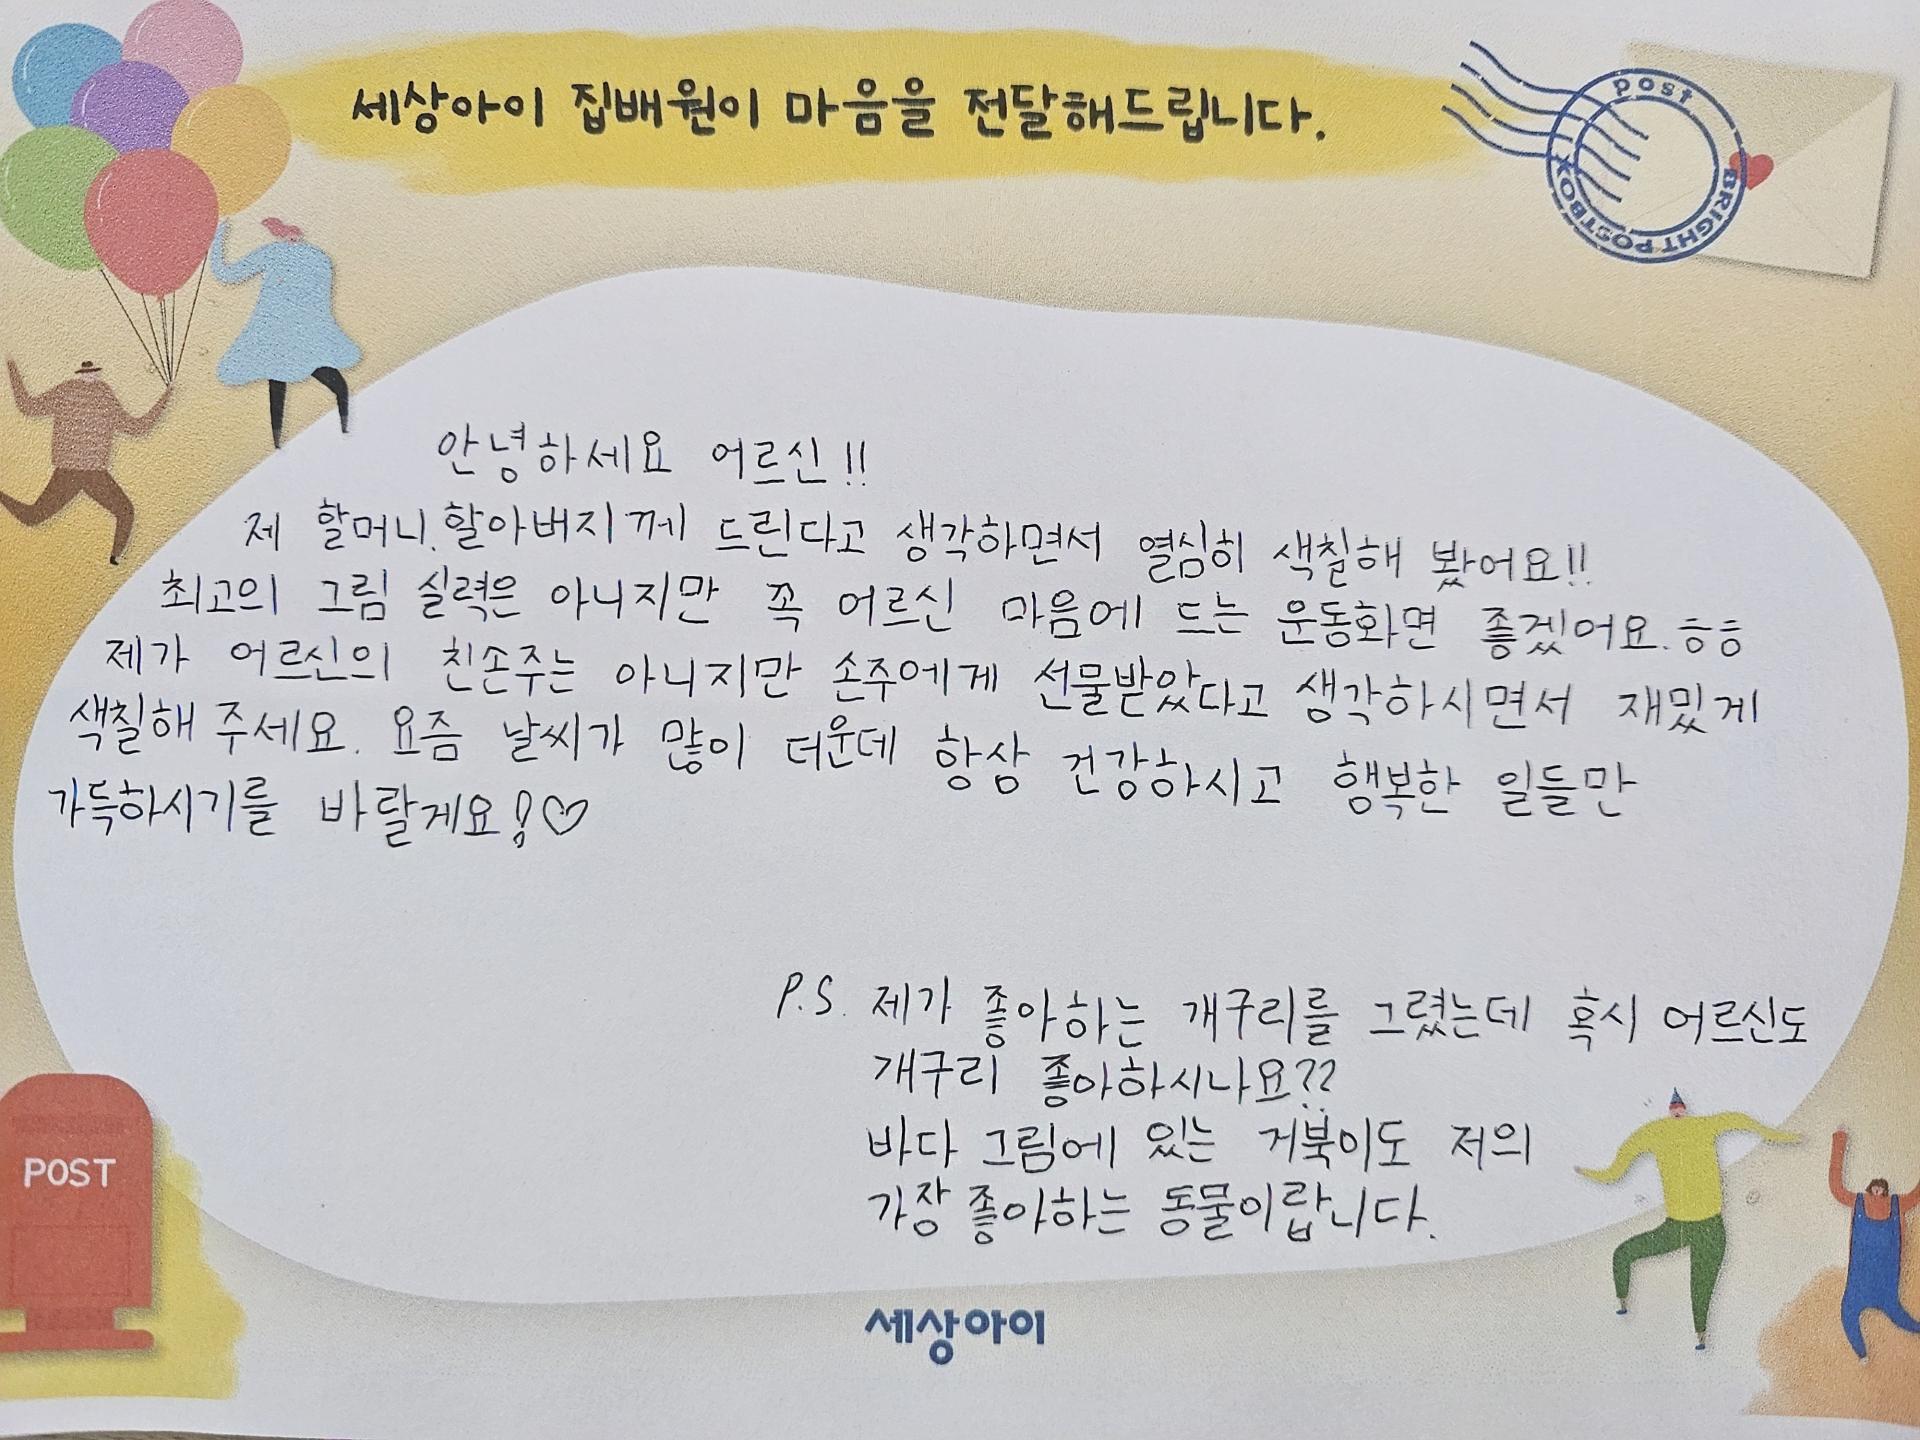 세상아이 집배원이 마음을 전달해드립니다.
post
BRIGHT POSTBOX
안녕하세요 어르신!!
제 할머니.할아버지께 드린다고 생각하면서 열심히 색칠해 봤어요!!
최고의 그림 실력은 아니지만 꼭 어르신 마음에 드는 운동화면 좋겠어요.ㅎㅎ
제가 어르신의 친손주는 아니지만 손주에게 선물받았다고 생각하시면서 재밌게
색칠해 주세요. 요즘 날씨가 많이 더운데 항상 건강하시고 행복한 일들만
가득하시기를 바랄게요!♡
P.S. 제가 좋아하는 개구리를 그렸는데 혹시 어르신도
개구리 좋아하시나요??
바다 그림에 있는 거북이도 저의
가장 좋아하는 동물이랍니다.
POST
세상아이